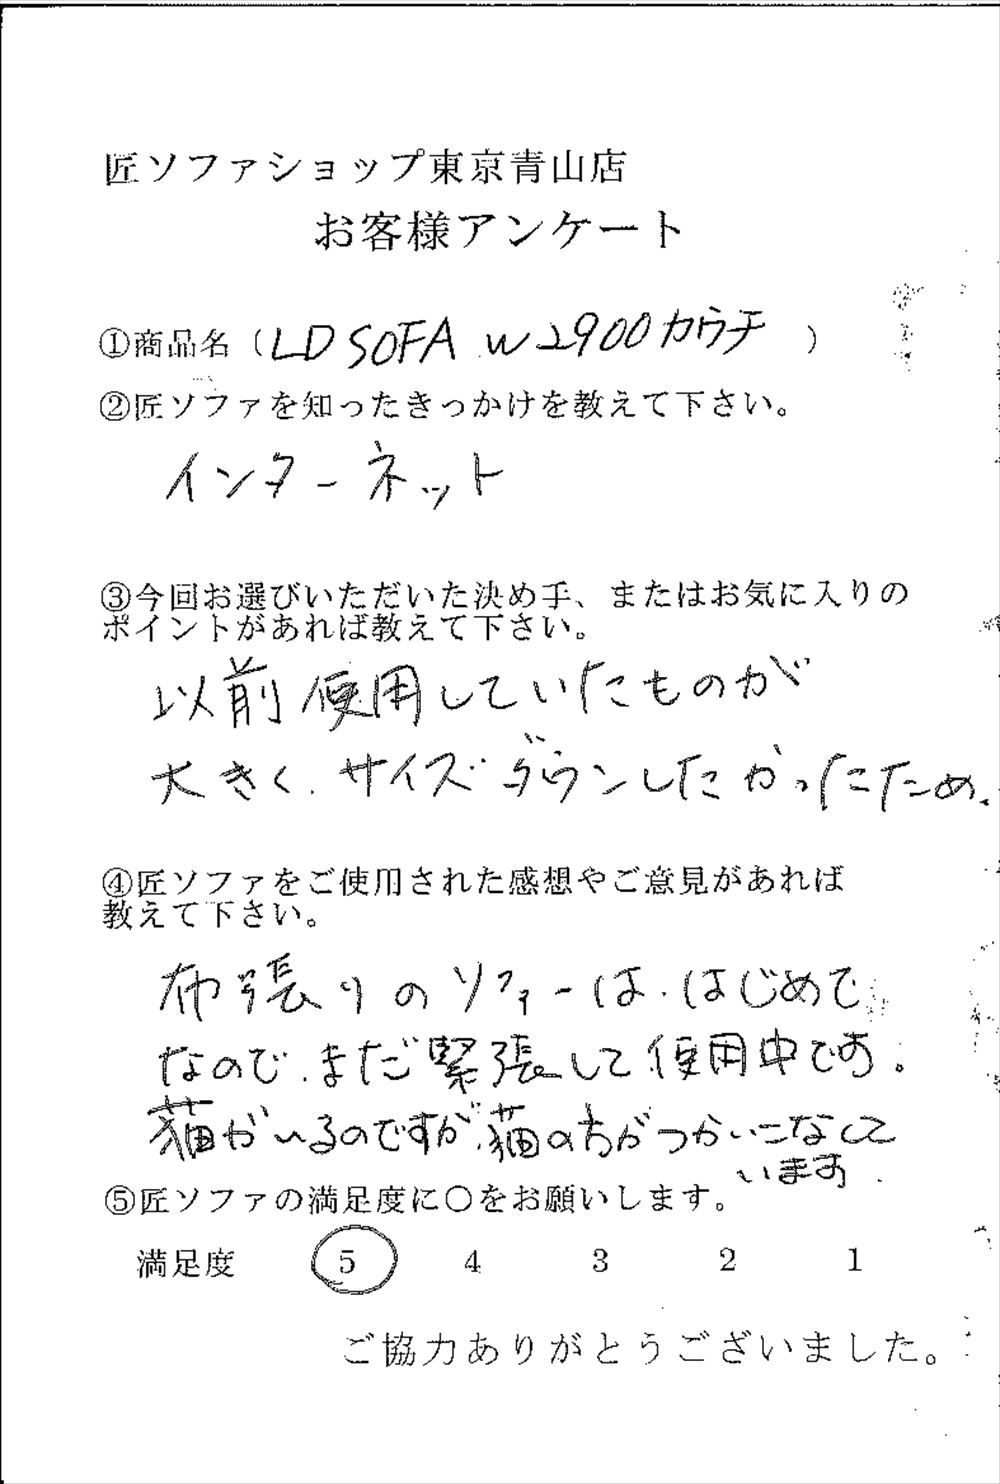 匠ソファショップ東京青山店
お客様アンケート
①商品名（LD SOFA W2900カウチ）
②匠ソファを知ったきっかけを教えて下さい。
インターネット
③今回お選びいただいた決め手、またはお気に入りの
ポイントがあれば教えて下さい。
以前使用していたものが
大きく、サイズダウンしたかったため、
④匠ソファをご使用された感想やご意見があれば
教えて下さい。
布張りのソファーは、はじめで
なので、まだ緊張して使用中です。
猫がいるのですが、猫の方がつかいこなして
います.
⑤匠ソファの満足度に〇をお願いします。
満足度 5 4 3 2 1
ご協力ありがとうございました。